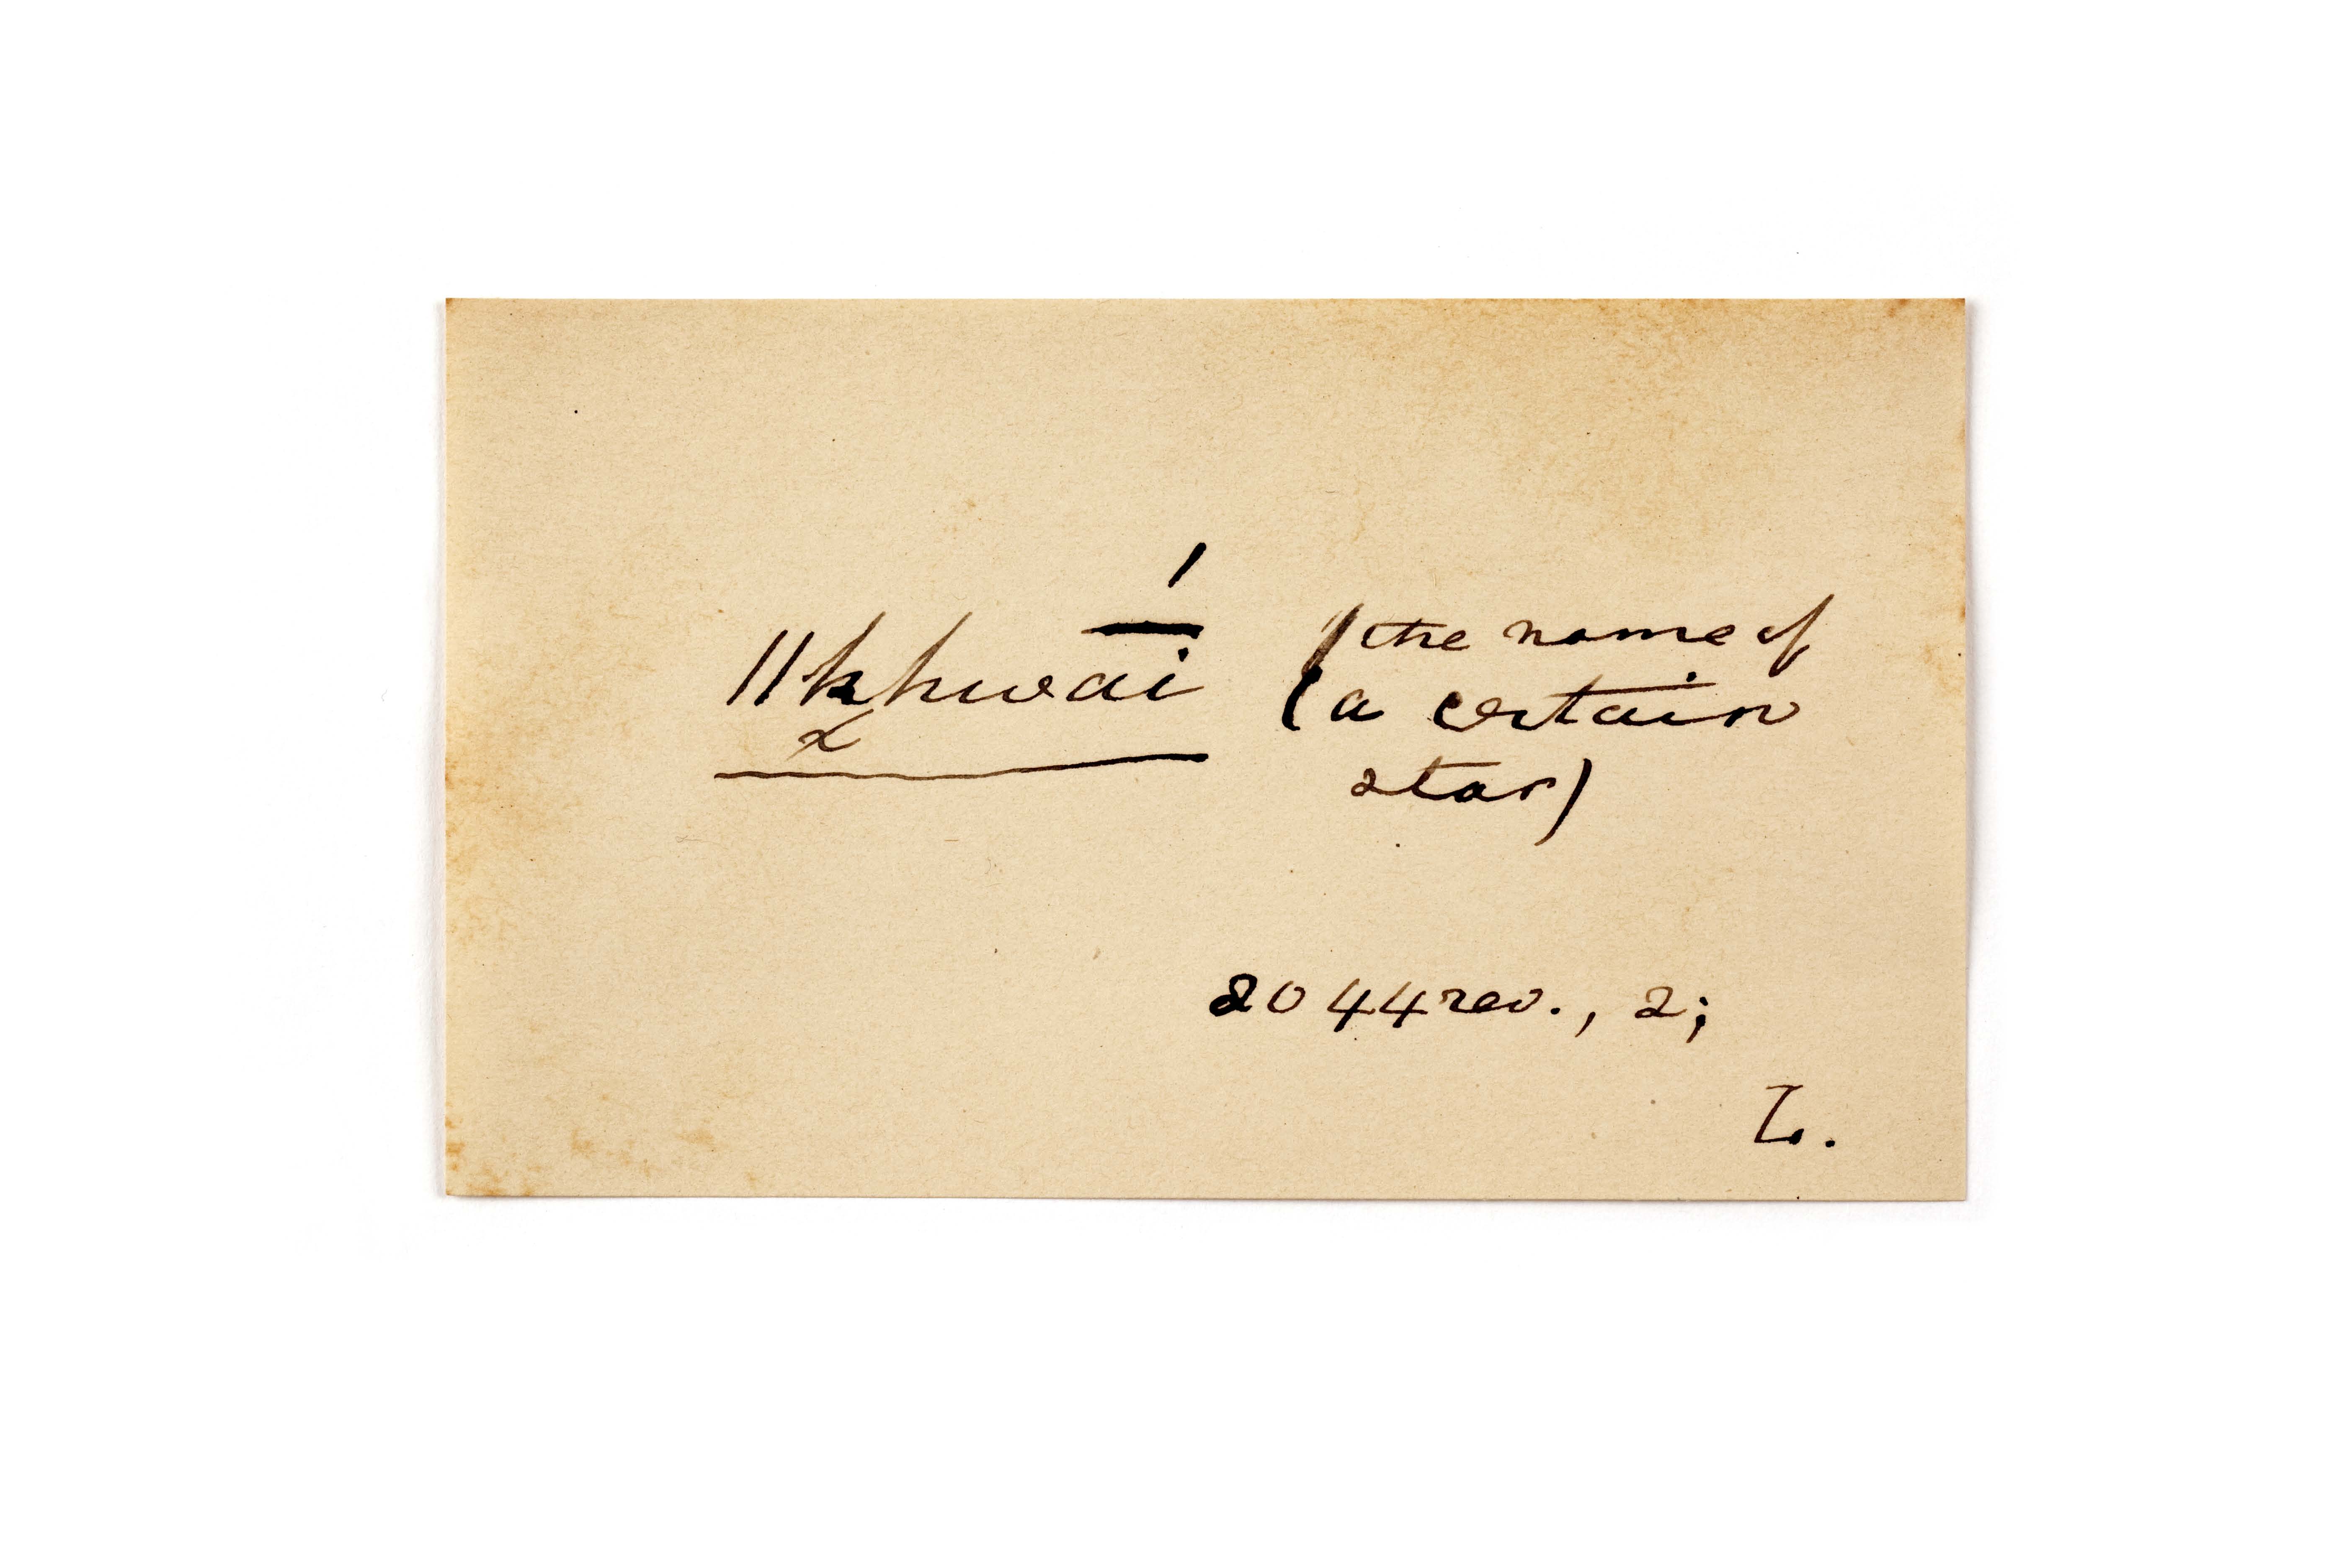 ǁkhwa̅í (the name of
(a certain
star)
2044 rev., 2;
L.